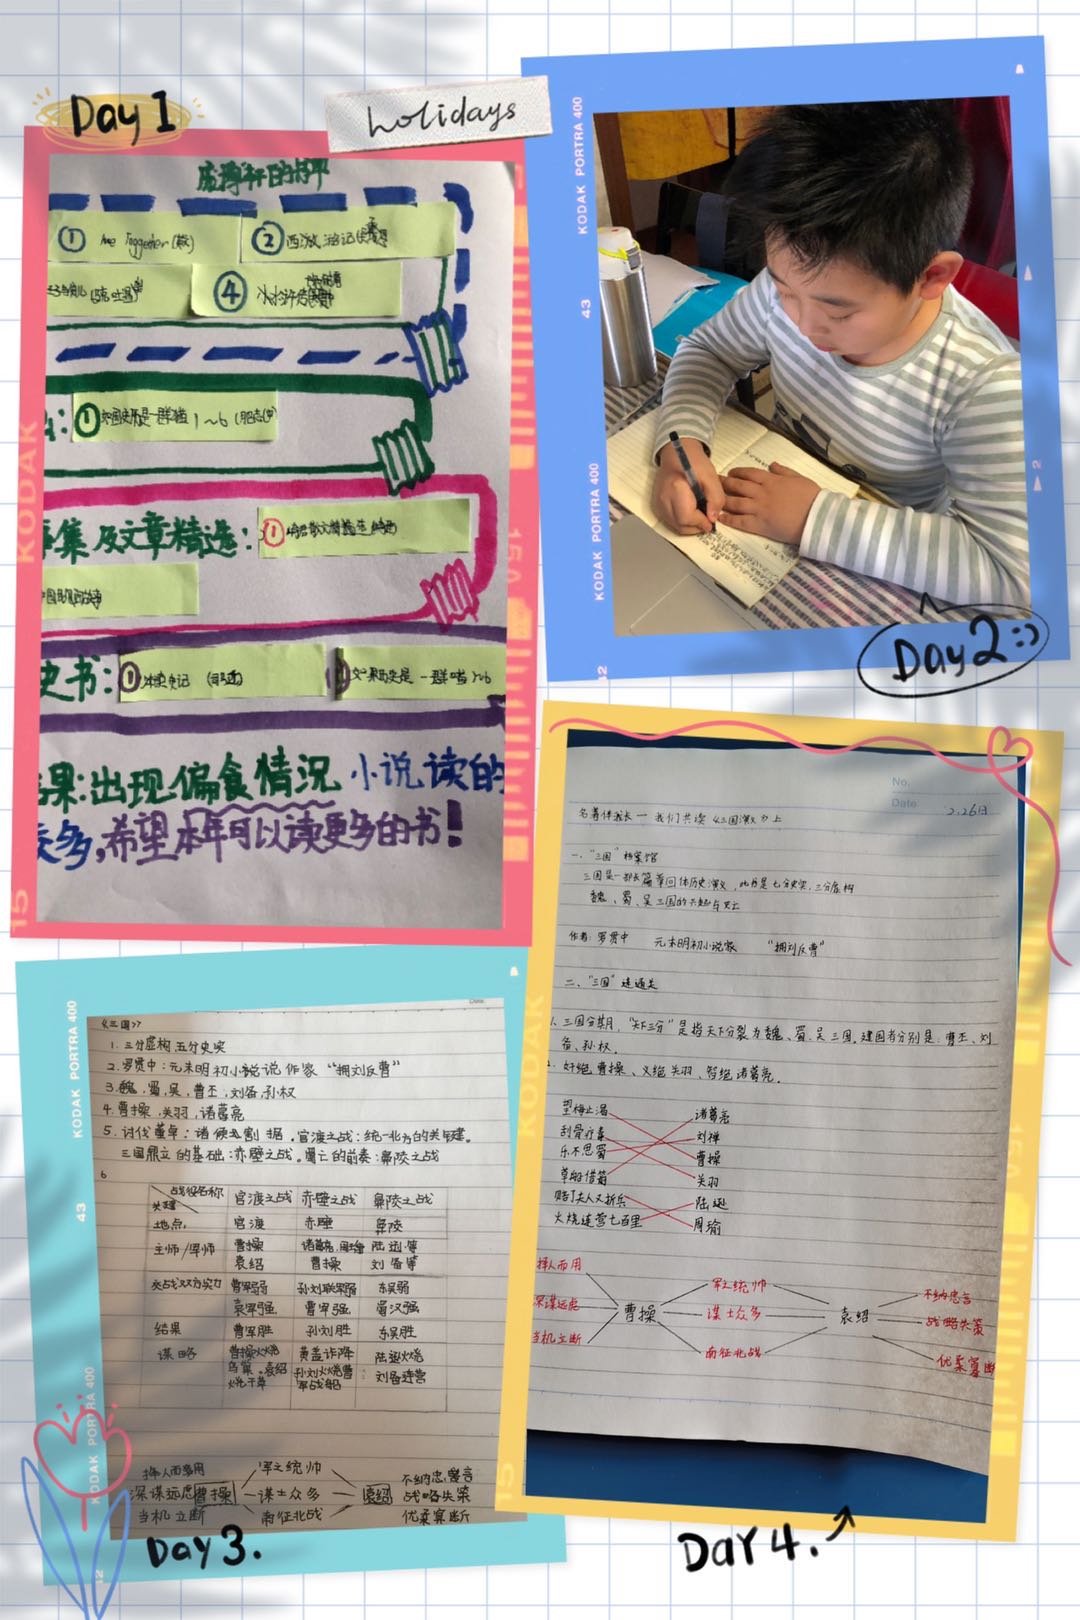 Day 1
holidays
① Are Toggether
② 西游
④
①
1~6
集及文章精选:
①
史书:
①
如果历史是一群喵
果:出现偏食情况 小说读的
多,希望本年可以读更多的书!
KODAK
15
15A
KODAK PORTRA 400
43
KODAK PORTRA 400
43
2
12
Day2:)
KODAK PORTRA 400
43
KODAK PORTRA 400
12
Date:
《三国》
1. 三分虚构 五分史实
2. 罗贯中:元末明初小说说作家 “拥刘反曹”
3. 魏,蜀,吴,曹丕,刘备,孙权
4. 曹操,关羽,诸葛亮
5. 讨伐董卓:诸侯割据。官渡之战:统一北方的关键。
三国鼎立的基础:赤壁之战。蜀亡的前奏:彝陵之战
6
战役名称 官渡之战 赤壁之战 彝陵之战
关键
地点 官渡 赤壁 彝陵
主帅/军师 曹操 诸葛亮,周瑜 陆逊等
袁绍 曹操 刘备等
交战双方实力 曹军弱 孙刘联军弱 东吴弱
袁军强 曹军强 蜀汉强
结果 曹军胜 孙刘胜 东吴胜
谋略 曹操火烧 黄盖诈降 陆逊火烧
乌巢,袁绍 孙刘火烧曹 刘备连营
军战船
择人而用 军之统帅 不纳忠言
深谋远虑 曹操 谋士众多 袁绍 战略失策
当机立断 南征北战 优柔寡断
Day 3.
KODAK
15A
15
No.
Date 2.26日
名著伴我长一我们共读《三国演义》上
一、“三国”档案馆
三国是一部长篇章回体历史演义,此书是七分史实,三分虚构
魏、蜀、吴三国的兴起与灭亡
作者:罗贯中 元末明初小说家 “拥刘反曹”
二、“三国”连通关
1. 三国分期月,“天下三分”是指天下分裂为魏、蜀、吴三国,建国者分别是:曹丕、刘
备、孙权。
2. 奸绝曹操、义绝关羽、智绝诸葛亮。
望梅止渴 诸葛亮
刮骨疗毒 刘禅
乐不思蜀 曹操
草船借箭 关羽
赔了夫人又折兵 陆逊
火烧连营七百里 周瑜
择人而用 军之统帅 不纳忠言
深谋远虑 曹操 谋士众多 袁绍 战略失策
当机立断 南征北战 优柔寡断
Day 4.